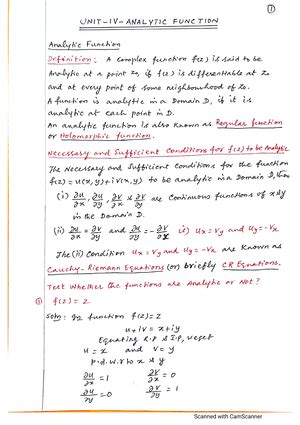 ①
UNIT-IV-ANALYTIC FUNCTION
Analytic Function
Definition: A complex function f(z) is said to be
Analytic at a point z₀, if f(z) is differentiable at z₀
and at every point of some neighbourhood of z₀.
A function is analytic in a Domain D, if it is
analytic at each point in D.
An analytic function is also known as Regular function
or Holomorphic function.
Necessary and Sufficient Conditions for f(z) to be Analytic
The Necessary and Sufficient Conditions for the function
f(z)=u(x,y)+iv(x,y) to be analytic in a Domain D, are
(i) ∂u/∂x, ∂u/∂y, ∂v/∂x & ∂v/∂y are Continuous functions of x & y
in the Domain D.
(ii) ∂u/∂x = ∂v/∂y and ∂u/∂y = -∂v/∂x ie) ux=vy and uy=-vx
The (ii) Condition ux=vy and uy=-vx are Known as
Cauchy-Riemann Equations (or) briefly CR Equations.
Test Whether the functions are Analytic or Not?
① f(z)=z
Soln: In function f(z)=z
u+iv = x+iy
Equating R.P & I.P, we get
u=x and v=y
p.d.w.r to x & y
∂u/∂x=1 ∂v/∂x=0
∂u/∂y=0 ∂v/∂y=1
Scanned with CamScanner